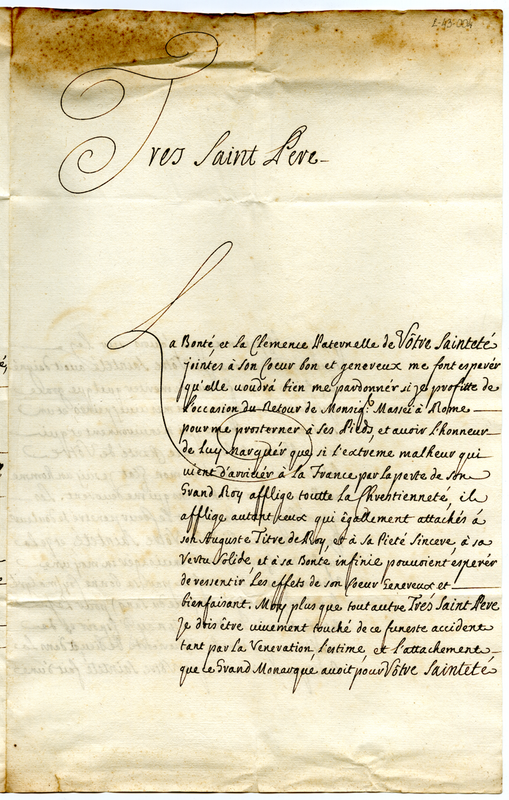 L-43-004
Tres Saint Pere
La Bonté et la Clemence Paternelle de Vôtre Sainteté
jointes à son Coeur bon et genereux me font esperér
qu'elle voudrá bien me pardonnér si je profitte de
l'occasion du Retour de Monsig.r Massei à Rome
pour me prosterner à ses Pieds, et avoir l'honneur
de Luy marquér que si l'extreme malheur qui
vient d'arrivér à la France par la perte de son
Grand Roy afflige toutte la Chrêtienneté, il
afflige autant ceux qui êgalement attachés á
son Auguste Titre de Roy, et à sa Pieté Sincere, à sa
Vertu Solide, et à sa Bonté infinie pouvoient esperér
de ressentir les effets de son Coeur Genereux et
bienfaisant. Moy plus que tout autre Trés Saint Pere
Je dois être vivement touché de ce funeste accident
tant par la Veneration, l'estime, et l'attachement
que le Grand Monarque avoit pour Vôtre Sainteté